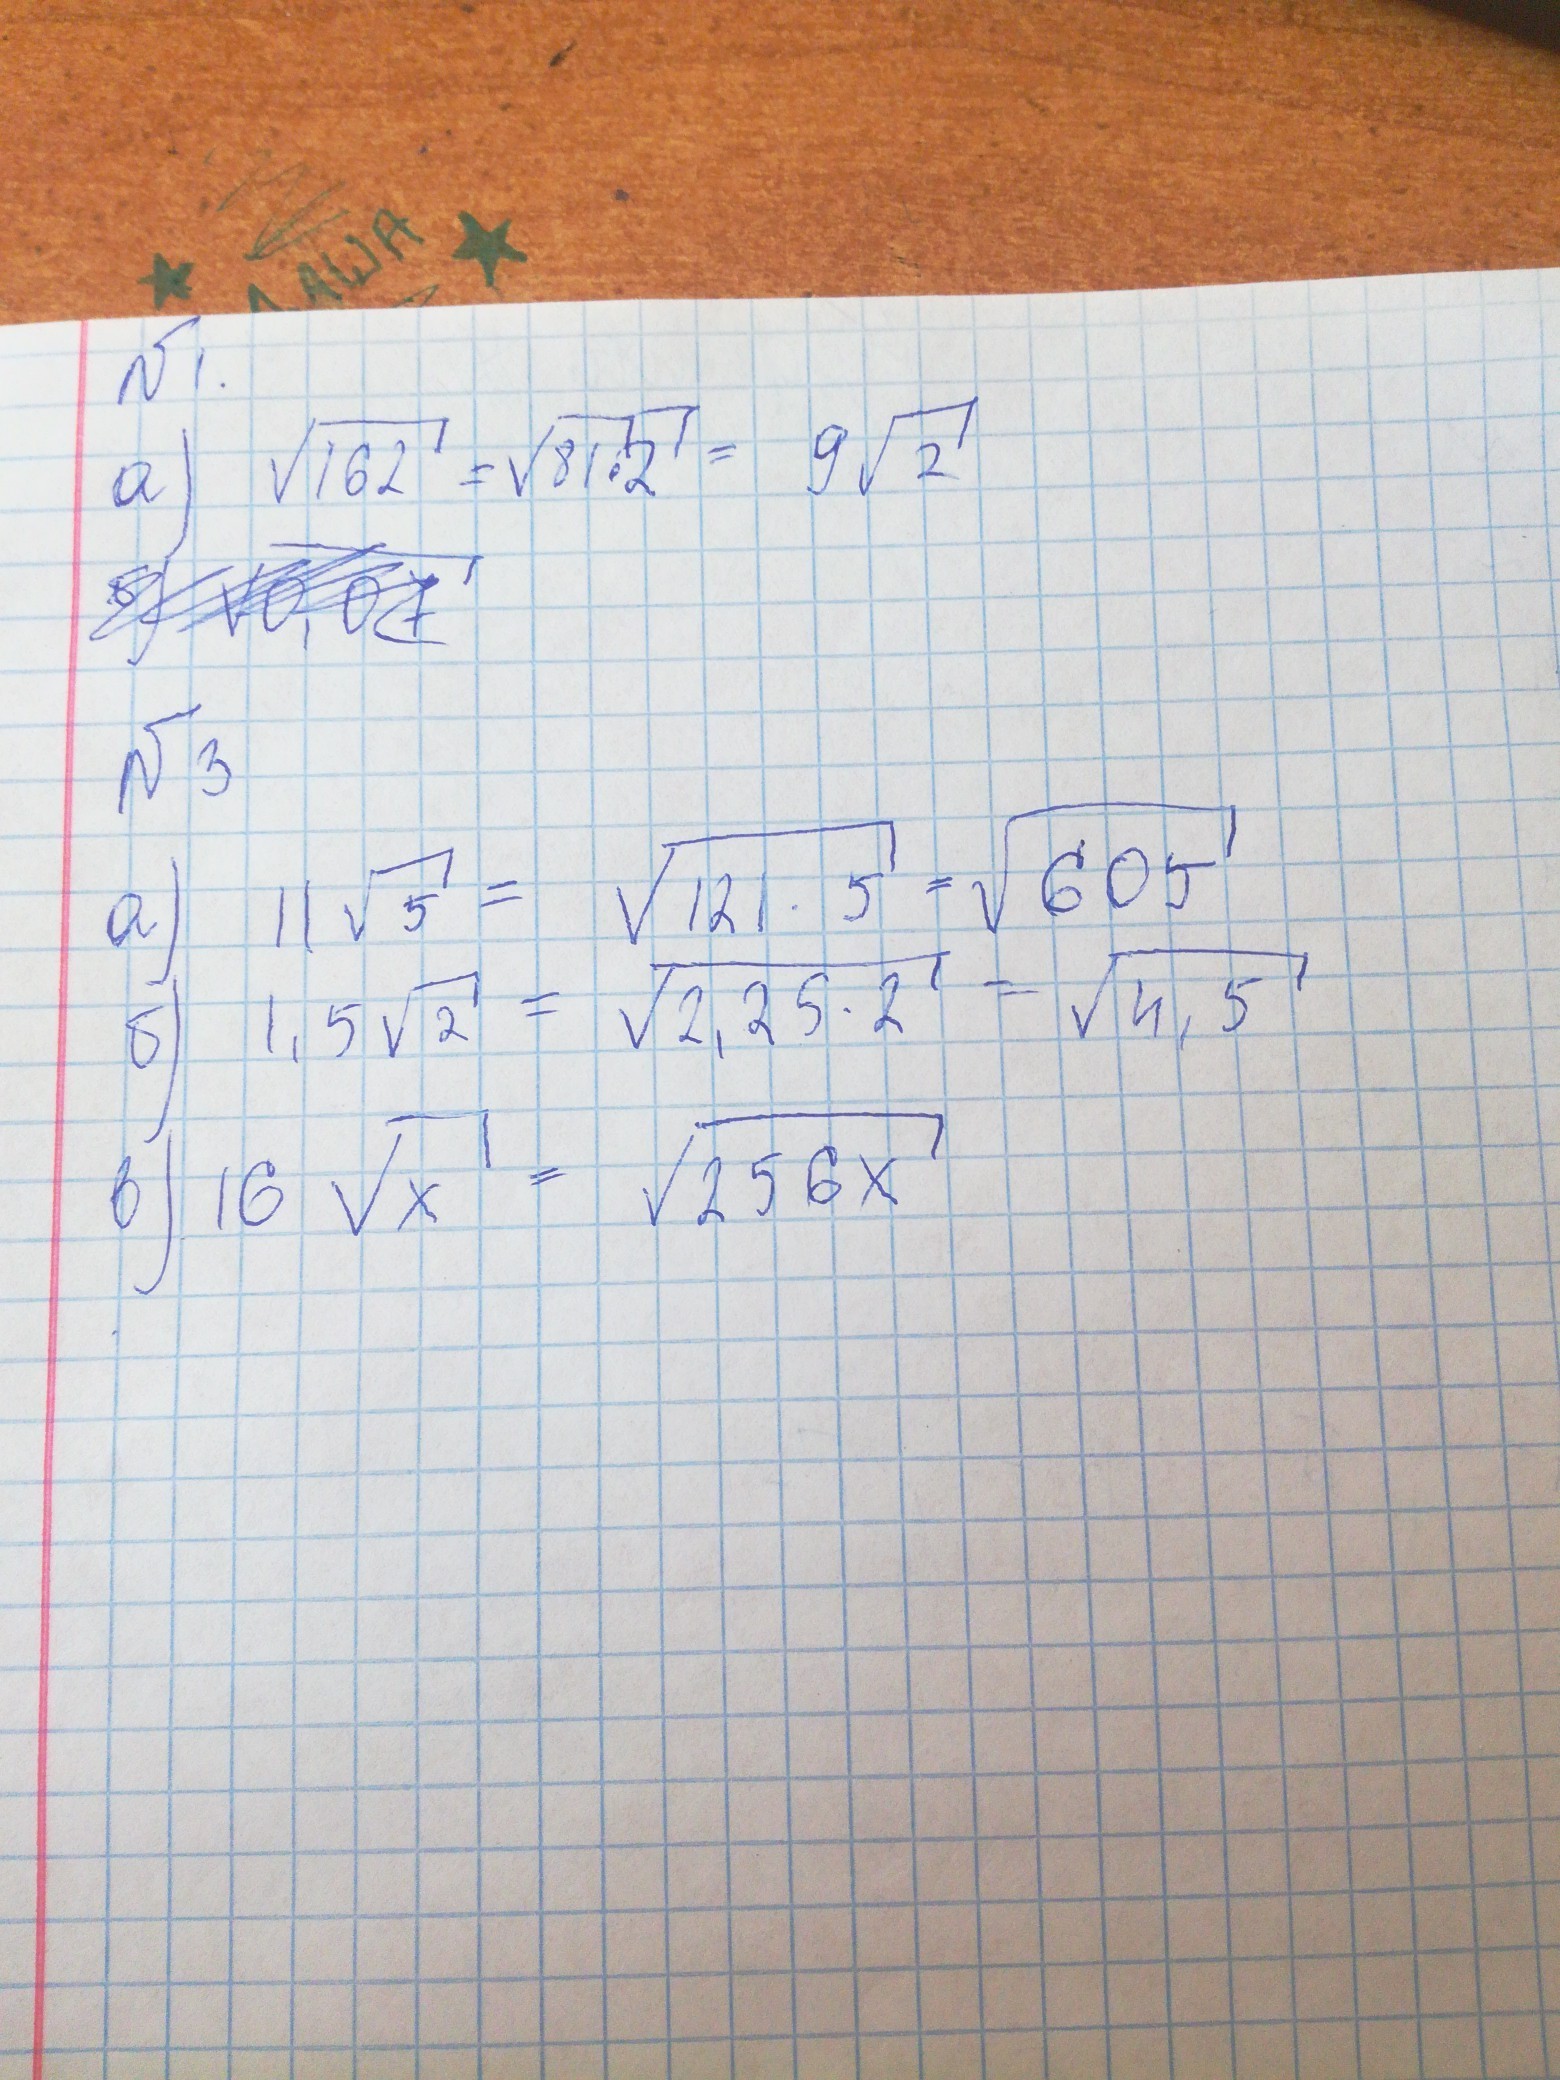 №1.
а) √162 = √81·2 = 9√2
№3
а) 11√5 = √121·5 = √605
б) 1,5√2 = √2,25·2 = √4,5
в) 16√x = √256x